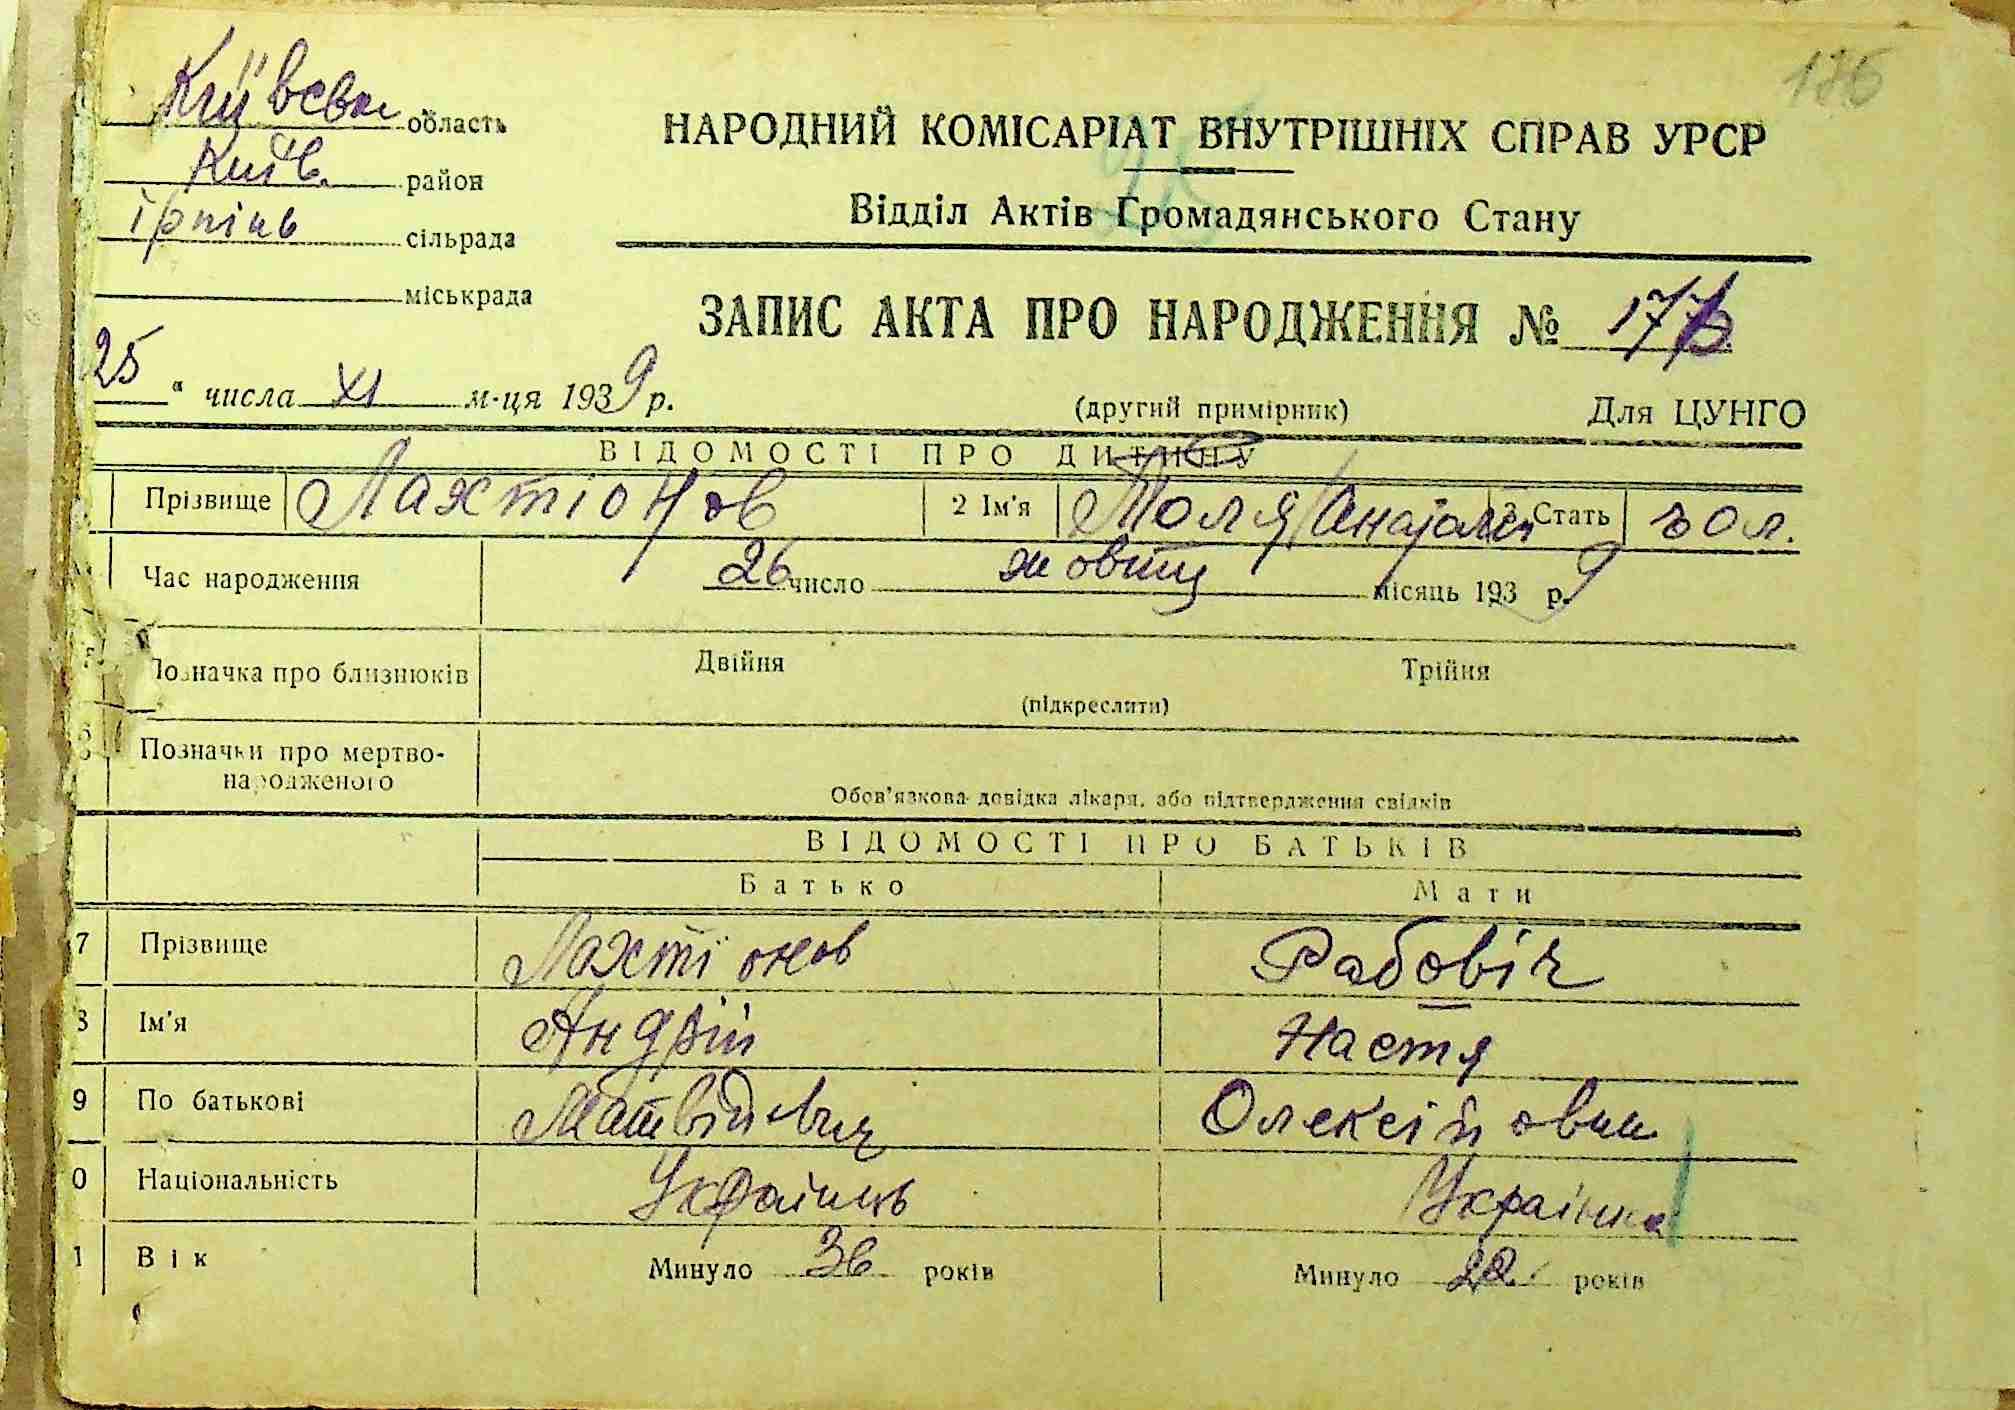 176
Київська область
Київ. район
Ірпінь сільрада
міськрада
НАРОДНИЙ КОМІСАРІАТ ВНУТРІШНІХ СПРАВ УРСР
Відділ Актів Громадянського Стану
ЗАПИС АКТА ПРО НАРОДЖЕННЯ №
25 " числа XI м-ця 1939 р.
(другий примірник) Для ЦУНГО
ВІДОМОСТІ ПРО ДИТИНУ
Прізвище Лахтіонов 2 Ім'я Толя (Анатолій 3 Стать чол.
Час народження 26 число жовтц місяць 1939 р.
Позначка про близнюків Двійня Трійня
(підкреслити)
6 Позначки про мертво-
народженого
Обов'язкова довідка лікаря, або підтвердження свідків
ВІДОМОСТІ ПРО БАТЬКІВ
Батько Мати
7 Прізвище Лахтіонов Рабовіч
8 Ім'я Андрій Настя
9 По батькові Матвійович Олексіївни
0 Національність Українець Українка
1 Вік Минуло 36 років Минуло 22 років